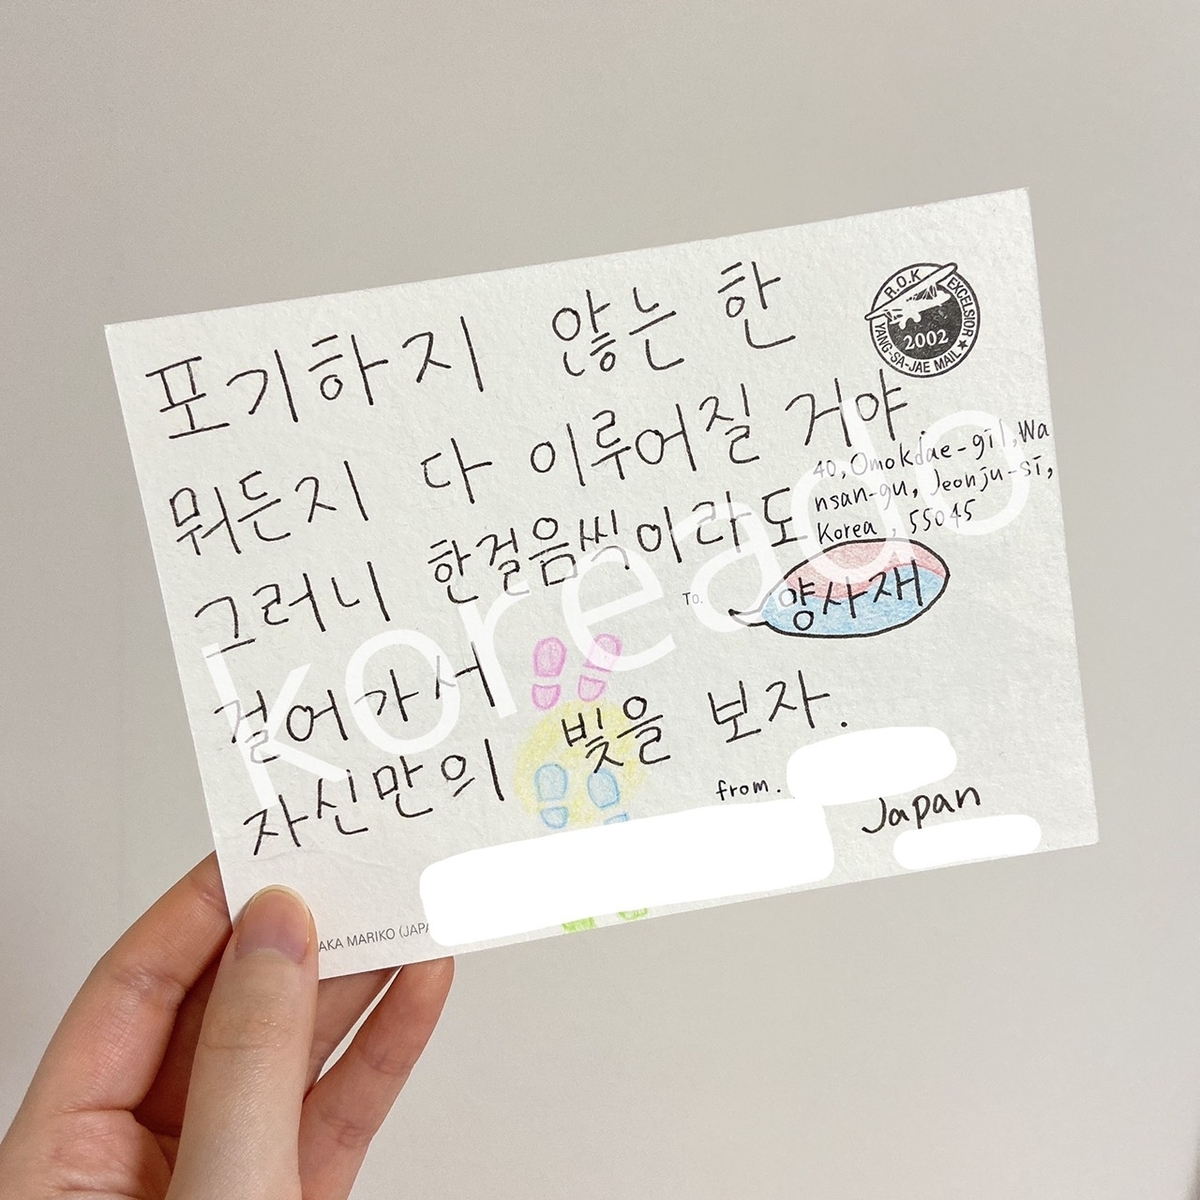 포기하지 않는 한
뭐든지 다 이루어질 거야.
그러니 한걸음씩이라도
걸어가서
자신만의 빛을 보자.
R.O.K EXCELSIOR
2002
YANG-SA-JAE MAIL ★
40, Omokdae-gil, Wa
nsan-gu, Jeonju-si,
Korea, 55045
To. 양사재
from.
Japan
AKA MARIKO (JAPA
koreado